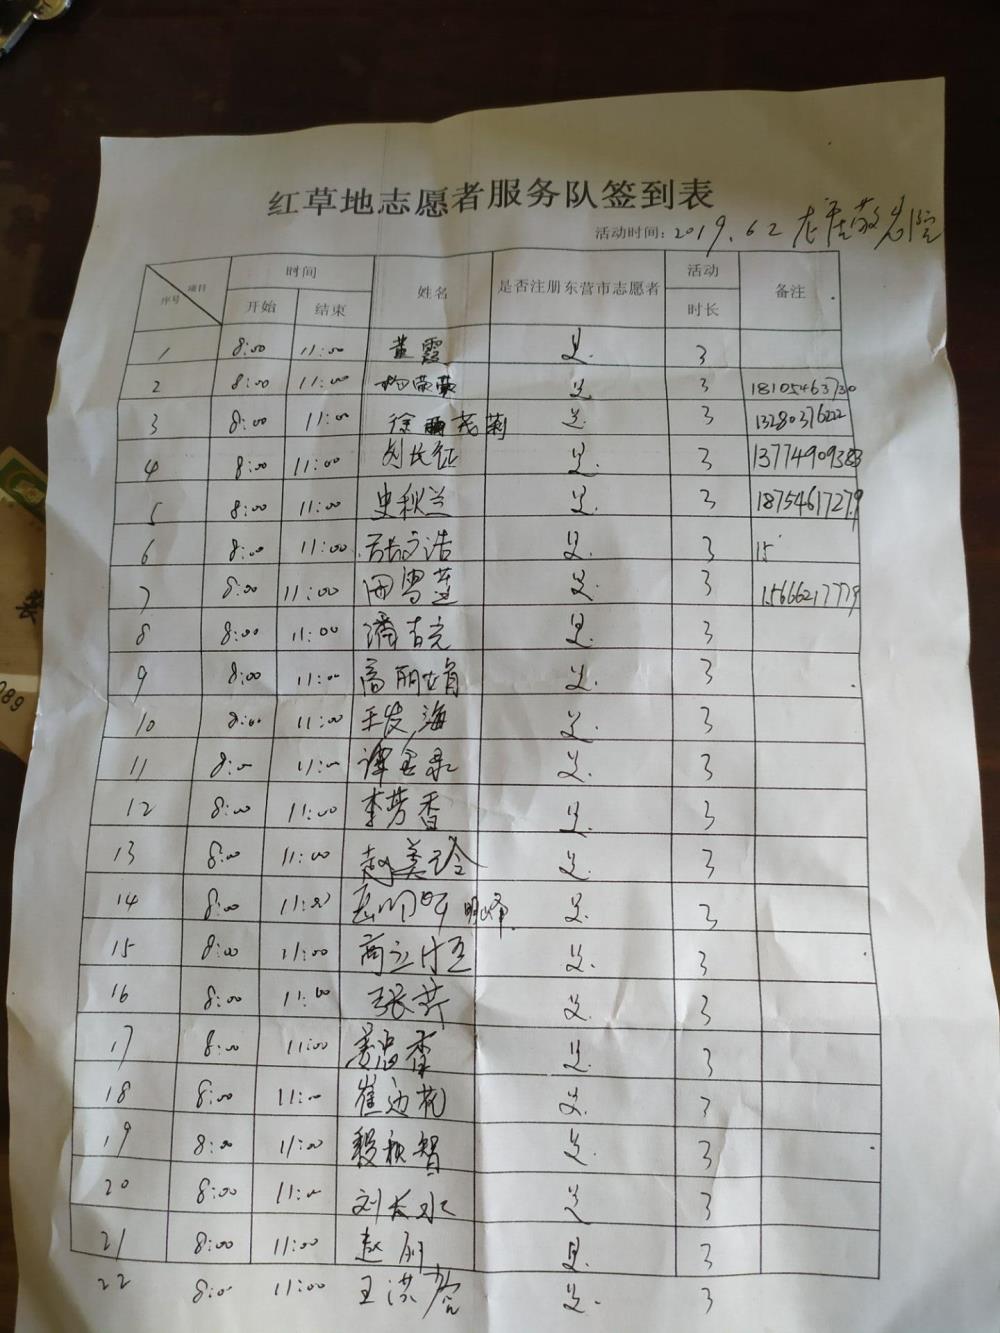 红草地志愿者服务队签到表
活动时间: 2019.6.2 龙居敬老院
项目 序号 时间 开始 结束 姓名 是否注册东营市志愿者 活动 时长 备注
1 8:00 11:00 黄霞 是. 3
2 8:00 11:00 杨荣荣 是 3 18105463730
3 8:00 11:00 徐茂莉 是. 3 13280376222
4 8:00 11:00 刘长征 是. 3 13774909388
5 8:00 11:00 史秋兰 是. 3 18754617279
6 8:00 11:00 张文浩 是. 3 15
7 8:00 11:00 田雪莲 是. 3 15666217779
8 8:00 11:00 潘吉亮 是. 3
9 8:00 11:00 高丽娟 是. 3
10 8:00 11:00 王发海 是. 3
11 8:00 11:00 谭金录 是. 3
12 8:00 11:00 李芳香 是. 3
13 8:00 11:00 赵美玲 是. 3
14 8:00 11:00 岳明峰 明峰. 是. 3
15 8:00 11:00 商立 是. 3
16 8:00 11:00 张芹 是. 3
17 8:00 11:00 香 是. 3
18 8:00 11:00 崔迎花 是. 3
19 8:00 11:00 秋智 是. 3
20 8:00 11:00 刘长水 是 3
21 8:00 11:00 赵丽 是. 3
22 8:00 11:00 王洪 是. 3
装
089